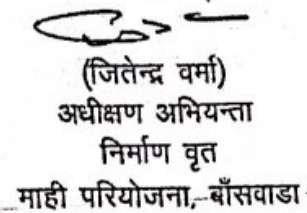 (जितेन्द्र वर्मा)
अधीक्षण अभियन्ता
निर्माण वृत
माही परियोजना, बाँसवाडा